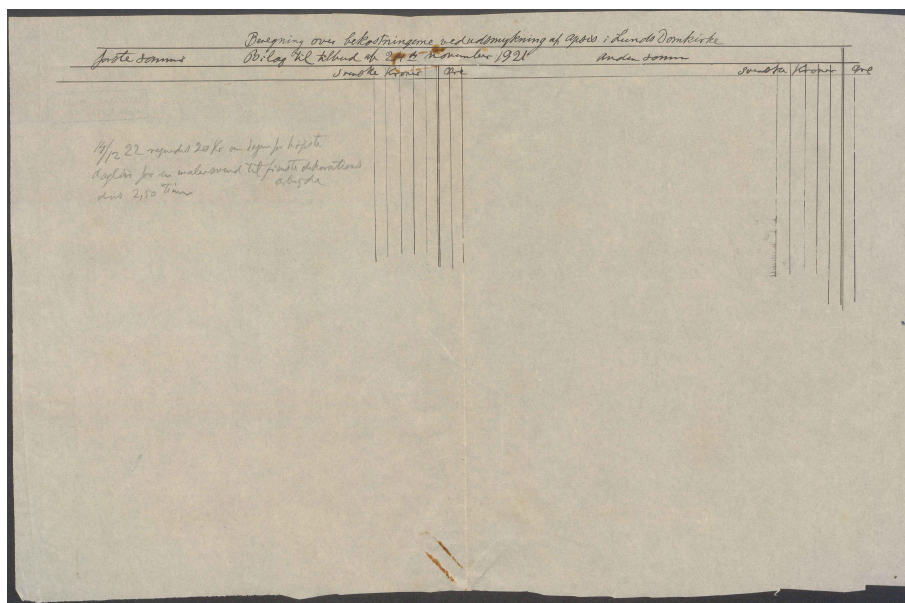 Beregning over bekostningerne ved udsmykning af apsis i Lunds Domkirke
første sommer Bilag til tilbud af november 1921 anden somm
svenske Kroner Øre svenske Kroner Øre
14/12 22 regnedes 20 Kr om dagen for højeste
dagløn for en malersvend til fineste dekorations
arbejde
dvs 2,50 Timen